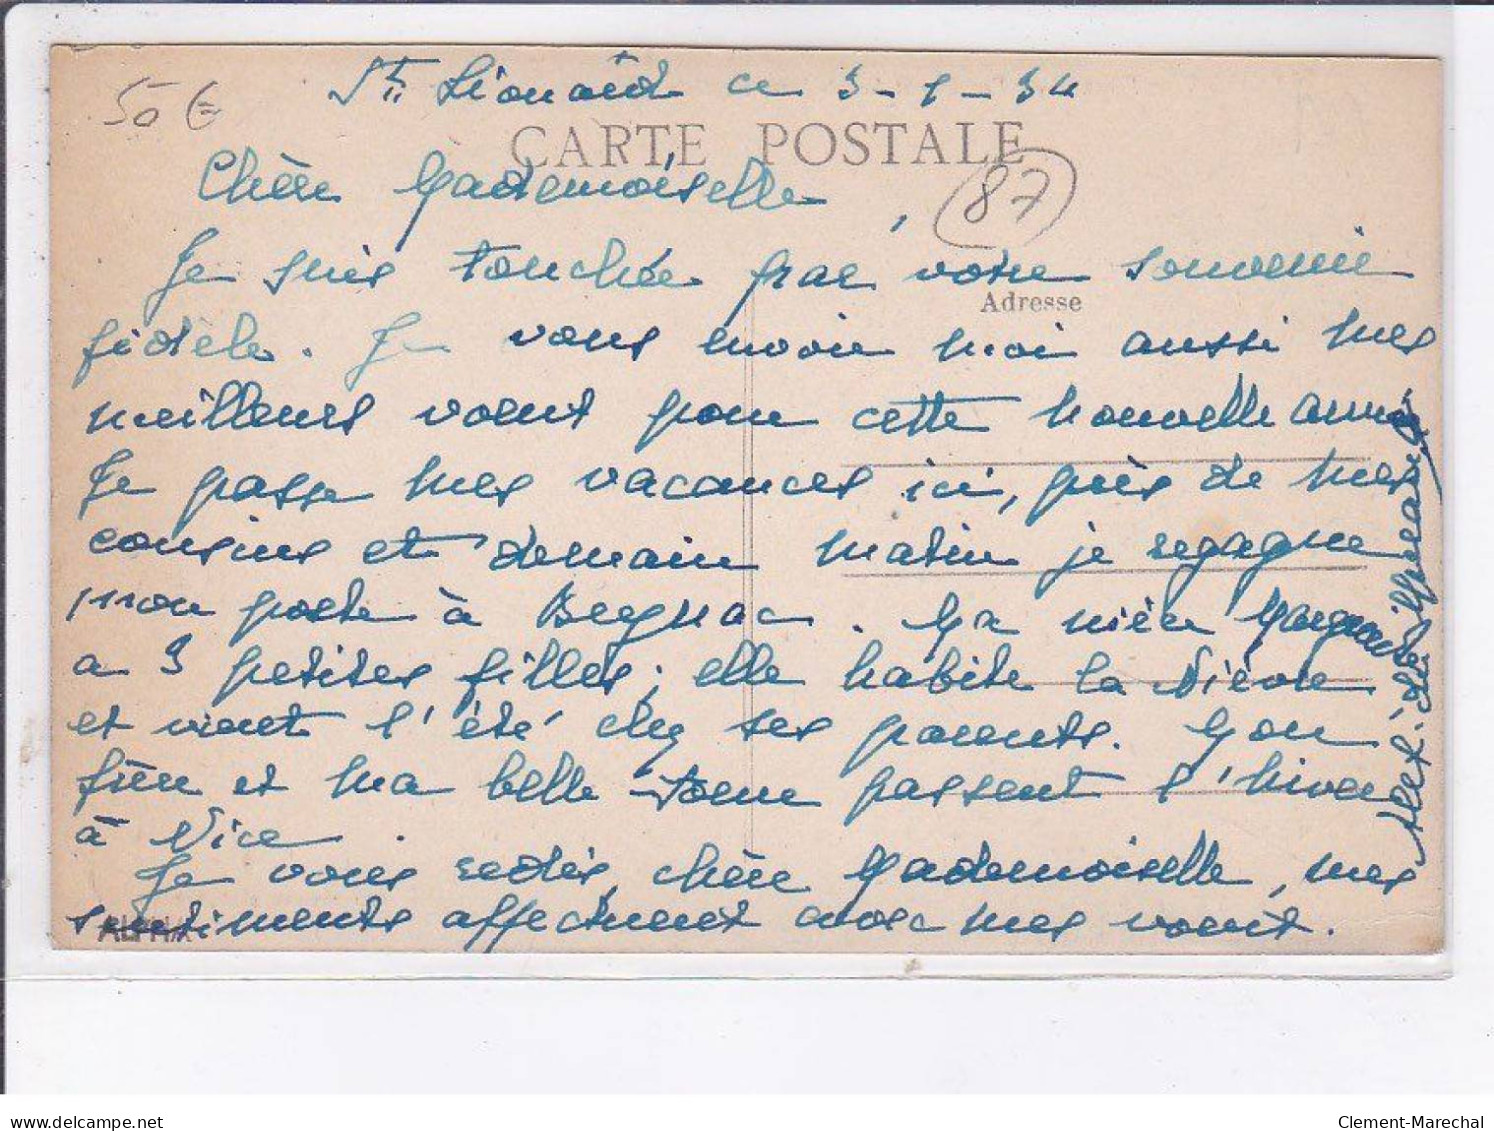 50 €
St Léonard ce 3-1-34
CARTE POSTALE
87
Chère Mademoiselle,
Je suis touchée par votre souvenir
Adresse
fidèle. Je vous envoie moi aussi mes
meilleurs voeux pour cette nouvelle année
Je passe mes vacances ici, près de mes
cousins et demain matin je regagne
mon poste à Beynac. Ma nièce Marguerite
a 3 petites filles; elle habite la Nièvre
et vient l'été chez ses parents. Mon
frère et ma belle soeur passent l'hiver
à Nice.
Je vous redis, chère Mademoiselle, mes
sentiments affectueux avec mes voeux.
delcampe.net
Clement-Marechal